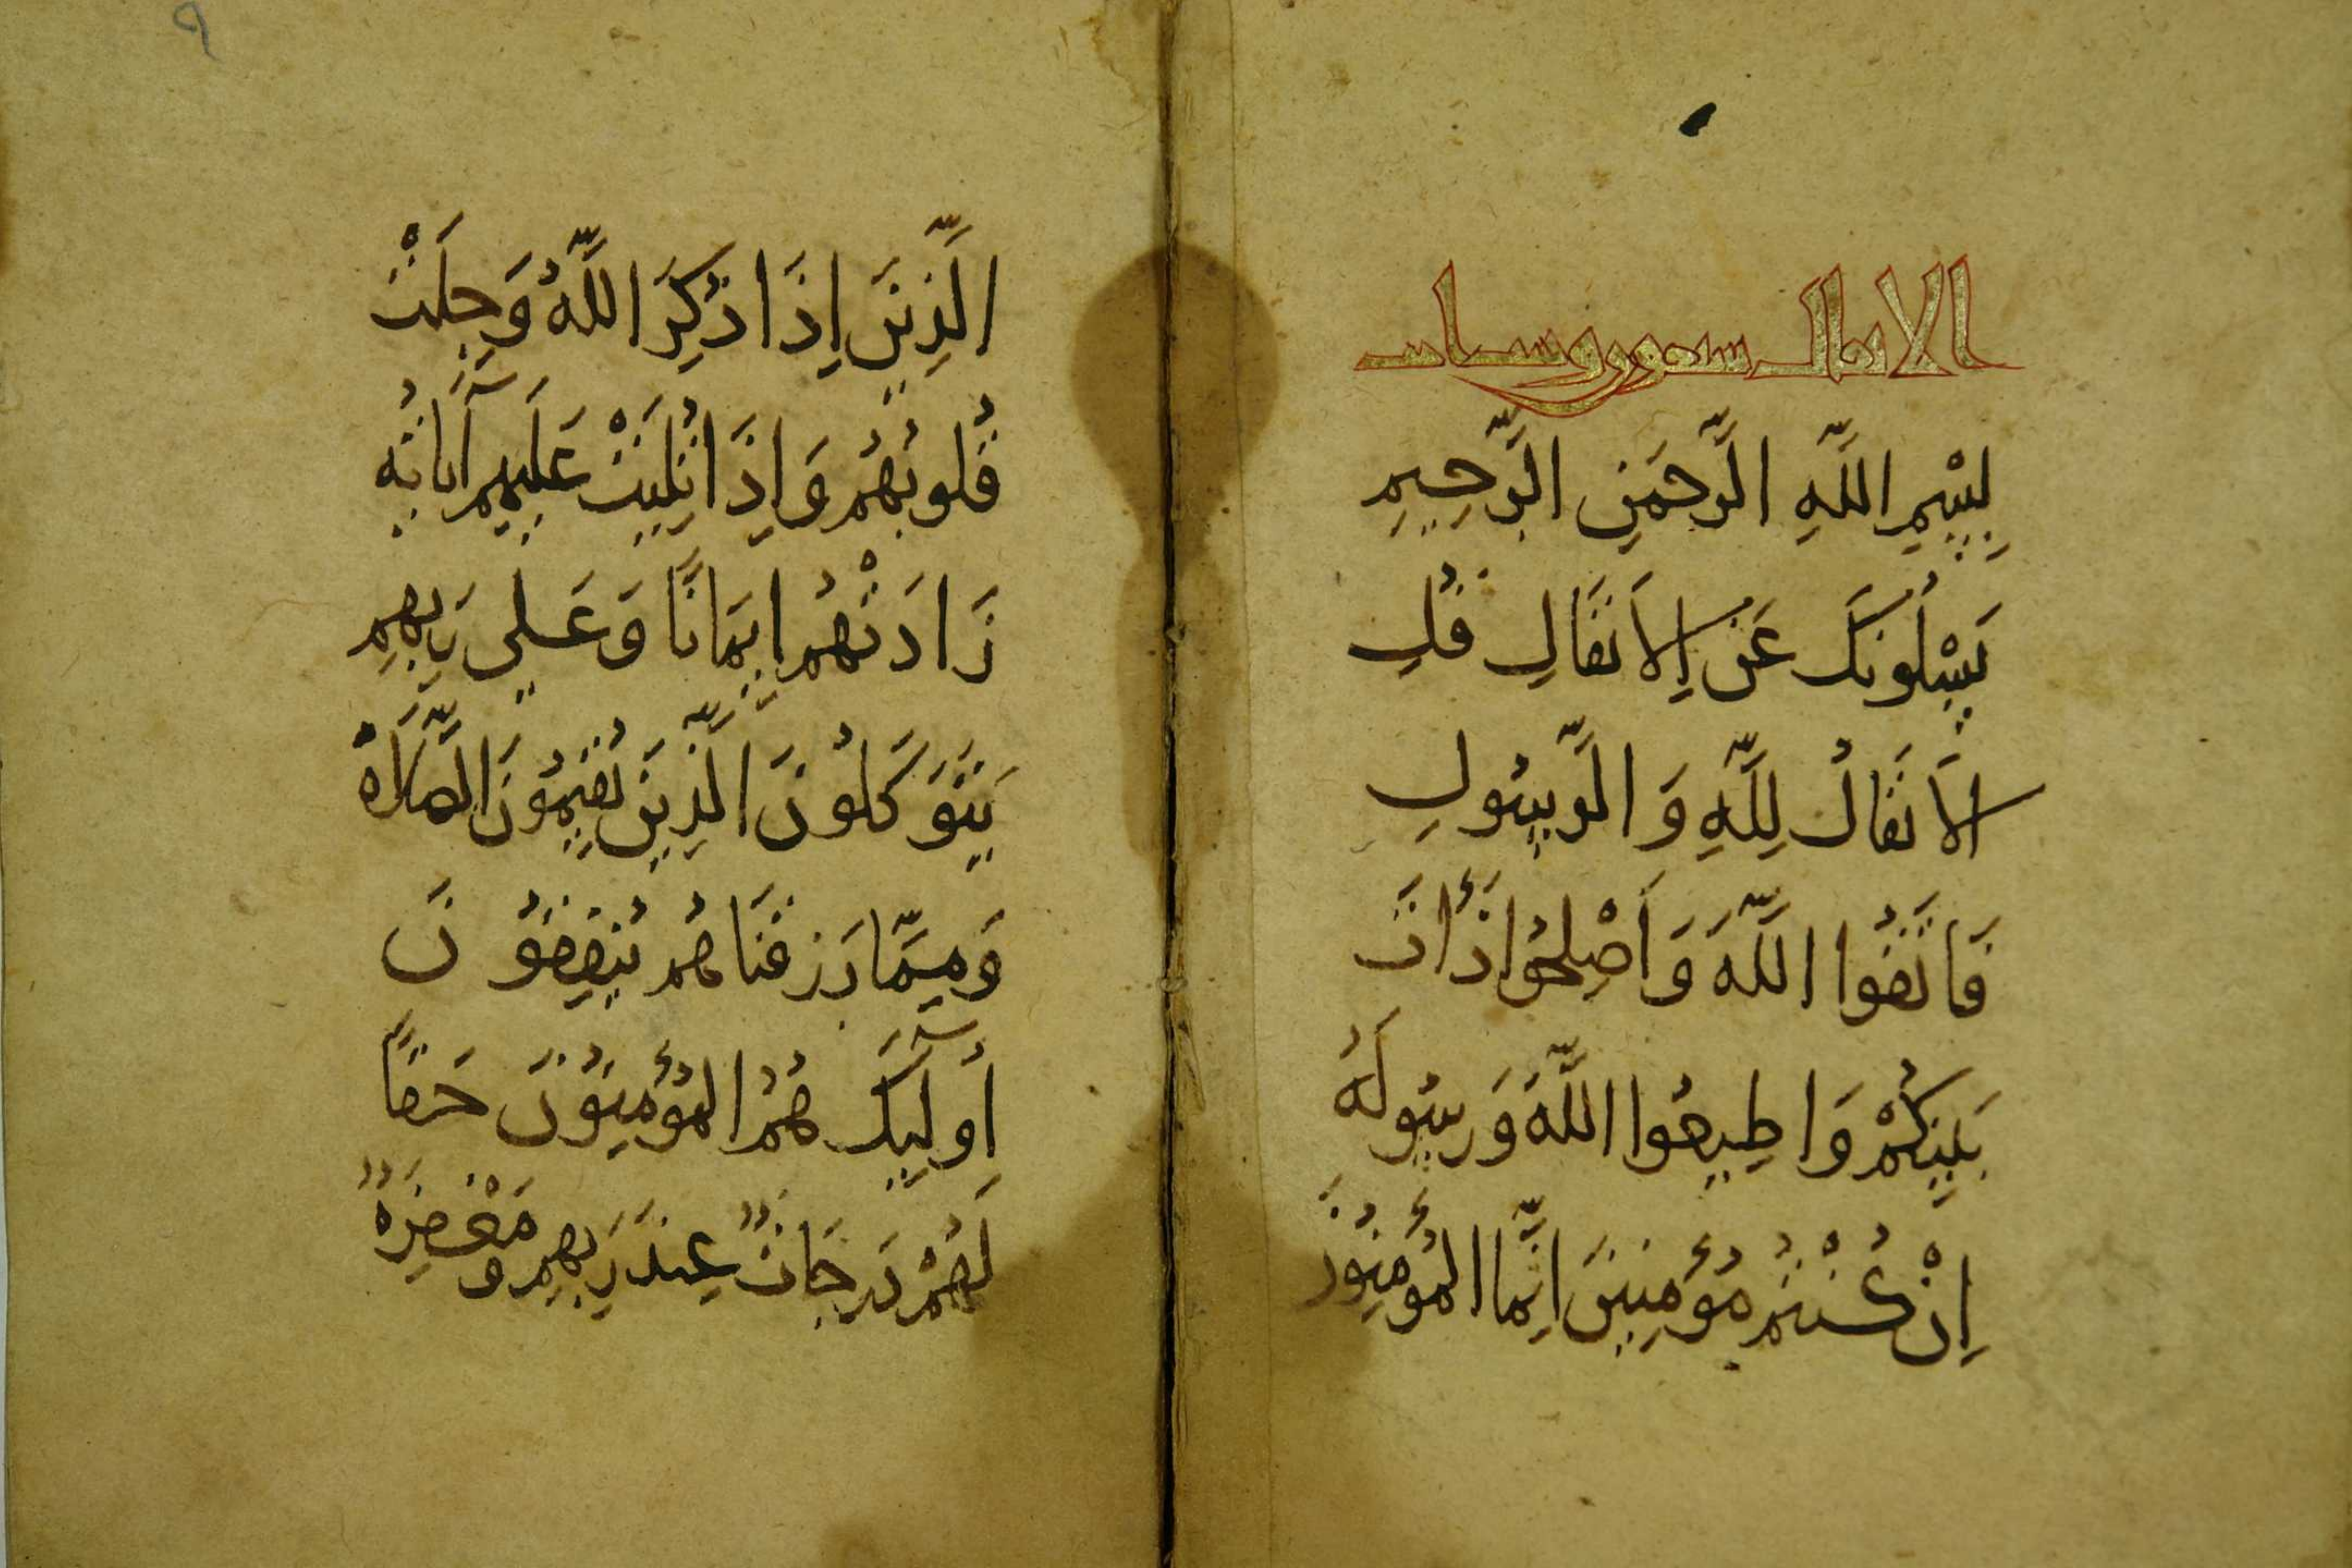 الانفال سبعون وست اىات
بِسْمِ اللَّهِ الرَّحْمَنِ الرَّحِيمِ
يَسْلُونَكَ عَنِ الْأَنفَالِ قُلِ
الْأَنفَالُ لِلَّهِ وَالرَّسُولِ
فَاتَّقُوا اللَّهَ وَأَصْلِحُوا ذَاتَ
بَيْنِكُمْ وَاطِيعُوا اللَّهَ وَرَسُولَهُ
إِنْ كُنْتُم مُؤْمِنِينَ إِنَّمَا الْمُؤْمِنُونَ
الَّذِينَ إِذَا ذُكِرَ اللَّهُ وَجِلَتْ
قُلُوبُهُم وَإِذَا تُلِيَتْ عَلَيْهِم آيَاتُهُ
زَادَتْهُم إِيمَانًا وَعَلَى رَبِّهِم
يَتَوَكَّلُونَ الَّذِينَ يُقِيمُونَ الصَّلَاةَ
وَمِمَّا رَزَقْنَاهُم يُنفِقُونَ
أُولَئِكَ هُمُ الْمُؤْمِنُونَ حَقًّا
لَهُمْ دَرَجَاتٌ عِندَ رَبِّهِم وَمَغْفِرَةٌ
٩